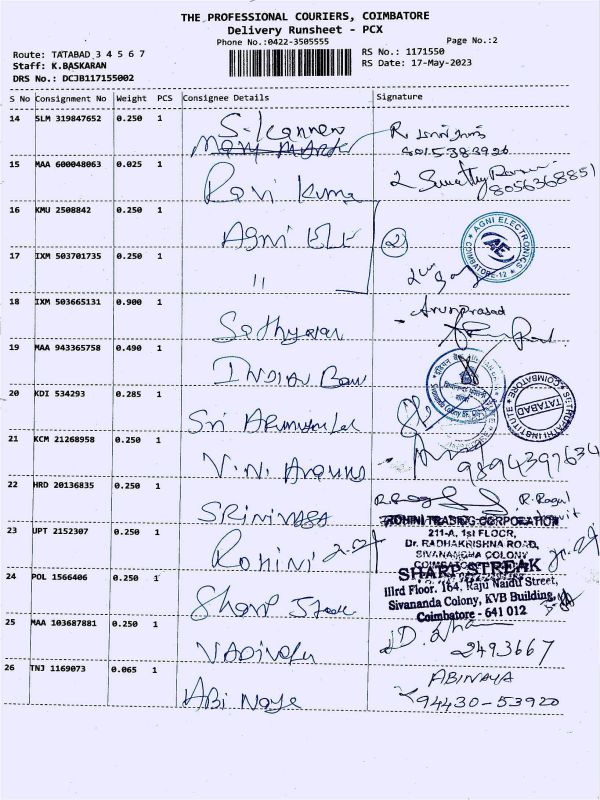 THE PROFESSIONAL COURIERS, COIMBATORE
Delivery Runsheet - PCX
Phone No.:0422-3505555 Page No.:2
Route: TATABAD 3 4 5 6 7 RS No.: 1171550
Staff: K.BASKARAN RS Date: 17-May-2023
DRS No.: DCJB117155002
S No Consignment No Weight PCS Consignee Details Signature
14 SLM 319847652 0.250 1 S. Kannan
8015383926
15 MAA 600048063 0.025 1 Ravi Kuma
8056368851
16 KMU 2508842 0.250 1 Agni ELE 2
AGNI ELECTRONICS
AE
COIMBATORE-12
17 IXM 503701735 0.250 1 11
18 IXM 503665131 0.900 1 Sathyavan Arunprasad
19 MAA 943365758 0.490 1 INDIAN Ban
20 KDI 534293 0.285 1 Sri
TATABAD
COIMBATORE
21 KCM 21268958 0.250 1 V.N.
9894397634
22 HRD 20136835 0.250 1 SRINIVASA R. Ragul
23 UPT 2152307 0.250 1 Rohini
ROHINI TRADING CORPORATION
211-A, 1st FLOOR,
Dr. RADHAKRISHNA ROAD,
SIVANANDHA COLONY
24 POL 1566406 0.250 1 Sharp
SHARP STREAK
IIIrd Floor, 164, Raju Naidu Street,
Sivananda Colony, KVB Building,
Coimbatore - 641 012
25 MAA 103687881 0.250 1 VADIVELU
2493667
26 TNJ 1169073 0.065 1 ABi Naya ABINAYA
94430-53920